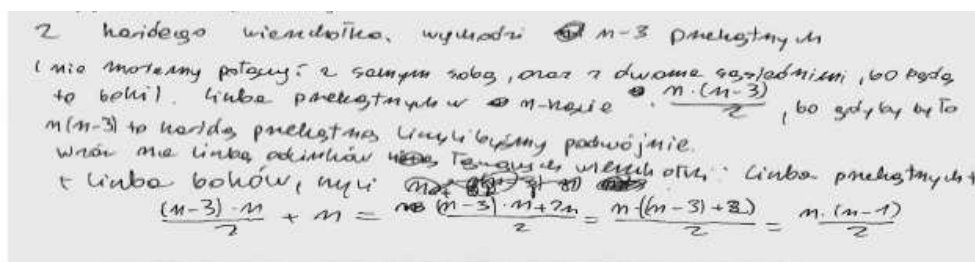 Z każdego wierzchołka wychodzi n-3 przekątnych
(nie możemy połączyć z samym sobą, oraz z dwoma sąsiednimi, bo będą
to boki). Liczba przekątnych w n-kącie \frac{n·(n-3)}{2}, bo gdyby było
n(n-3) to każdą przekątną liczylibyśmy podwójnie.
Wzór na liczbę odcinków łączących wierzchołki: Liczba przekątnych +
+ liczba boków, czyli
\frac{(n-3)·n}{2} + n = \frac{(n-3)·n+2n}{2} = \frac{n·((n-3)+2)}{2} = \frac{n·(n-1)}{2}